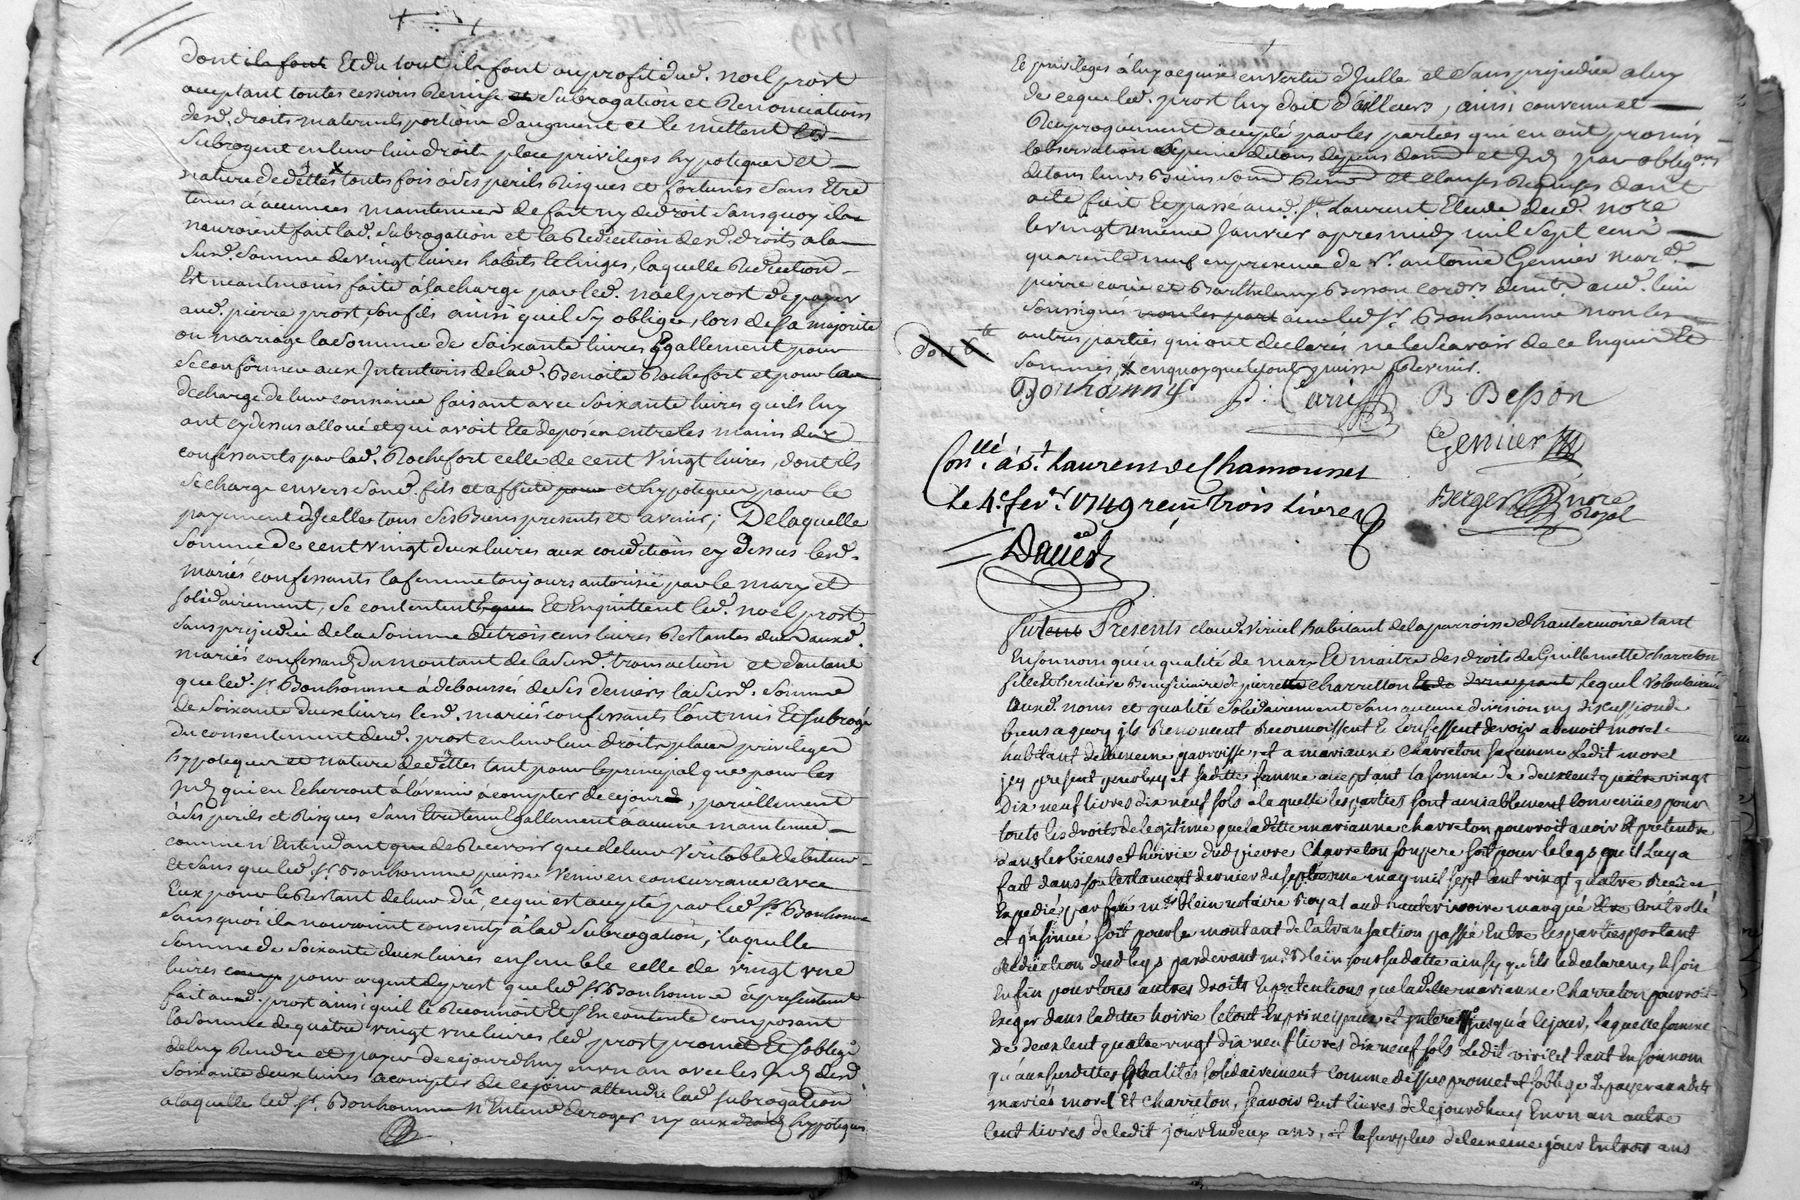 dont ila font Et du tout ils font au profit dud. noel prost
acceptant toutes cessions Remise et subrogation et Renonciations
desd. droits maternels portion d'augment et le mettent led.
subrogent en leur lieu droit place privileges hypoteques et
nature de dettes toutsfois à ses perils Risques et fortunes sans Etre
tenus à aucunes maintenues de fait ny de droit sans quoy ils
nauroient fait lad. subrogation et la Reduction desd. droits a la
susd. somme de vingt livres habits et linges, laquelle Reduction
Est neantmoins faite à la charge par led. noel prost de payer
aud. pierre prost, son fils ainsi quel s'y oblige, lors de sa majorité
ou mariage la somme de soixante livres Egallement pour
se conformer aux Intentions de lad. Benoite Rochefort et pour la
decharge de leur consiance faisant avec soixante livres quils luy
ont cy dessus alloué et qui avoit Eté deposée entre les mains des
confessants par lad. Rochefort celle de cent vingt livres, dont ils
se charge envers sond. fils et affecte pour et hypoteque pour le
payement d'Icelles tous ses Biens presents et avenir; De laquelle
somme de cent vingt deux livres aux conditions cy dessus lesd.
mariés confessants la femme toujours autorisée par le mary et
solidairement, se contentent que Et Enquittent led. noel prost
sans prejudice de la somme de trois cens livres Restantes deue auxd.
mariés confessans du montant de la susd. transaction et d'autant
que led. sr Bonhomme à déboursés de ses deniers la susd. somme
de soixante deux livres lesd. mariés confessants l'ont mis Et subrogé
du consentement dud. prost en leur lieu droits place privileges
hypoteques et nature de dettes tant pour le principal que pour les
Int. qui en Echerront à l'avenir a compter de ce jourd., pareillement
à ses perils et Risques sans Etre tenus Egallement a aucune maintenue
comme n'Entendant que de Recevoir que de leur veritable debiteur
Et sans que led. sr Bonhomme puisse venir en concurrance avec
Eux pour le Restant de leur dû, ce qui est accepté par led. sr Bonhomme
sans quoi ils nauroient consenty à lad. subrogation; laquelle
somme de soixante deux livres ensemble celle de vingt une
livres pour argent de prest que led. sr Bonhomme à presentement
fait aud. prost ainsi quil le Reconnoit Et s'En contente composant
la somme de quatre vingt une livres, led. prost promet Et s'oblige
de luy Rendre et payer de ce jourd'huy en un an avec les Int. desd.
soixante deux livres a compter de ce jour attendu lad. subrogation
a laquelle led. sr. Bonhomme n'Entend deroger ny aux droits hypoteques
Et privileges à luy acquis en vertu d'Icelle et sans prejudice a luy
de ce que led. prost luy doit d'ailleurs, ainsi convenu et
Reciproquement accepté par les parties qui en ont promis
l'observation à peine de tous depens dom. et Int. par obligons
de tous leurs Biens soum. Renon. et clauses Requises dont
acte fait Et passé aud. St. Laurent Etude dud. nore
le vingt unieme Janvier apres midy mil sept cent
quarente neuf en presence de sr. antoine Genier mard.
pierre carie et Barthelemy Besson cordrs demts aud. lieu
soussignés non les part avec led. sr. Bonhomme non les
autres parties qui ont declarés ne le scavoir de ce Enquis Et
sommés, X en quoy que le tout puisse Revenir.
Bonhomme P. Carie B. Besson
Genier
Conllé. à St. Laurens de Chamousset
le 4e. fevr. 1749 reçu Trois Livres
Berger nore Royal
Dauest
Furent Presents claude viriel habitant de la parroisse d'hauterivoire tant
En son nom qu'en qualité de mary Et maitre des droits de Guillemette charreton
fille et heritiere Beneficiaire de pierre charretton lequel volontairement
Auxd. noms et qualité solidairement sans aucune division ny discussion de
biens a quoy ils Renoncent Reconnoissent Et Confessent devoir a benoit morel
habitant de la meme parroisse, et a marianne charreton sa femme Ledit morel
icy present pour luy et saditte femme acceptant la somme de deux Cent quatre vingt
Dix neuf livres dix neuf sols a laquelle les parties sont amiablement Convenües pour
touts les droits de legitime que la ditte marianne charreton pourroit avoir Et pretendre
dans les biens et hoirie dud. pierre Charreton son pere soit pour le legs qu'il Luy a
fait dans son testament dernier du septieme may mil sept Cent vingt quatre Reçû et
Expedié par feu me. blein notaire Royal aud. hauterivoire marqué Etre Controllé
et Insinué soit pour le montant de la transaction passée Entre les parties portant
Reduction dud. legs pardevant me. blein sous sa datte ainsy qu'ils le declarent, Et soit
Enfin pour tous autres droits Et pretentions que la ditte marianne Charreton pourroit
Exiger dans la ditte hoirie le tout En principaux et Interest jusqu'à Ce jour, Laquelle somme
de deux Cent quatre vingt dix neuf livres dix neuf sols Ledit viriel tant En son nom
qu'aux susdittes qualités solidairement Comme dessus promet et s'oblige De payer auxdits
mariés morel Et Charreton, sçavoir Cent livres de Ce jourd'huy En un an autre
Cent livres de Ce dit jour En deux ans, et le surplus de Ce meme jour En trois ans